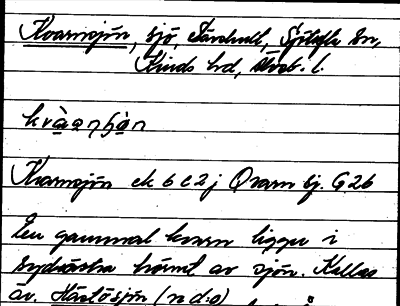 Kvarnsjön, sjö, Tärdhult, Sjötofta sn,
Kinds hd, Älvsb. l.
Kvarnsjön ek 6 C 2 j Qvarn sj. G 26
En gammal kvarn ligger i
sydvästra hörnet av sjön. Kallas
äv. Hästösjön (n d:o)